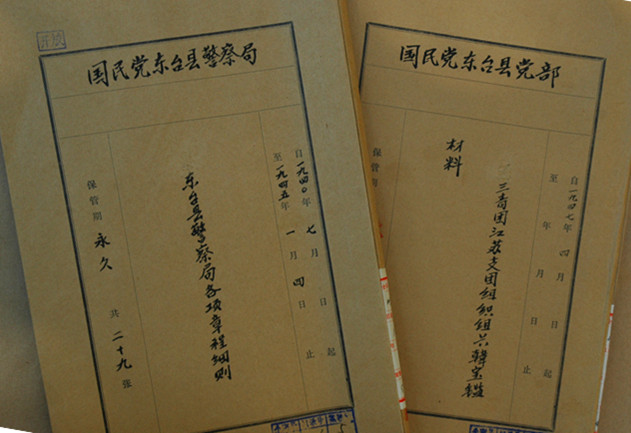 国民党东台县警察局
自一九四〇年七月 日起
至一九四五年一月四日止
东台县警察局各项章程细则
保管期 永久 共二十九张
国民党东台县党部
自一九四七年四月 日起
至 年 月 日止
三青团江苏支团组织组长韩宝鑑
材料
保管期